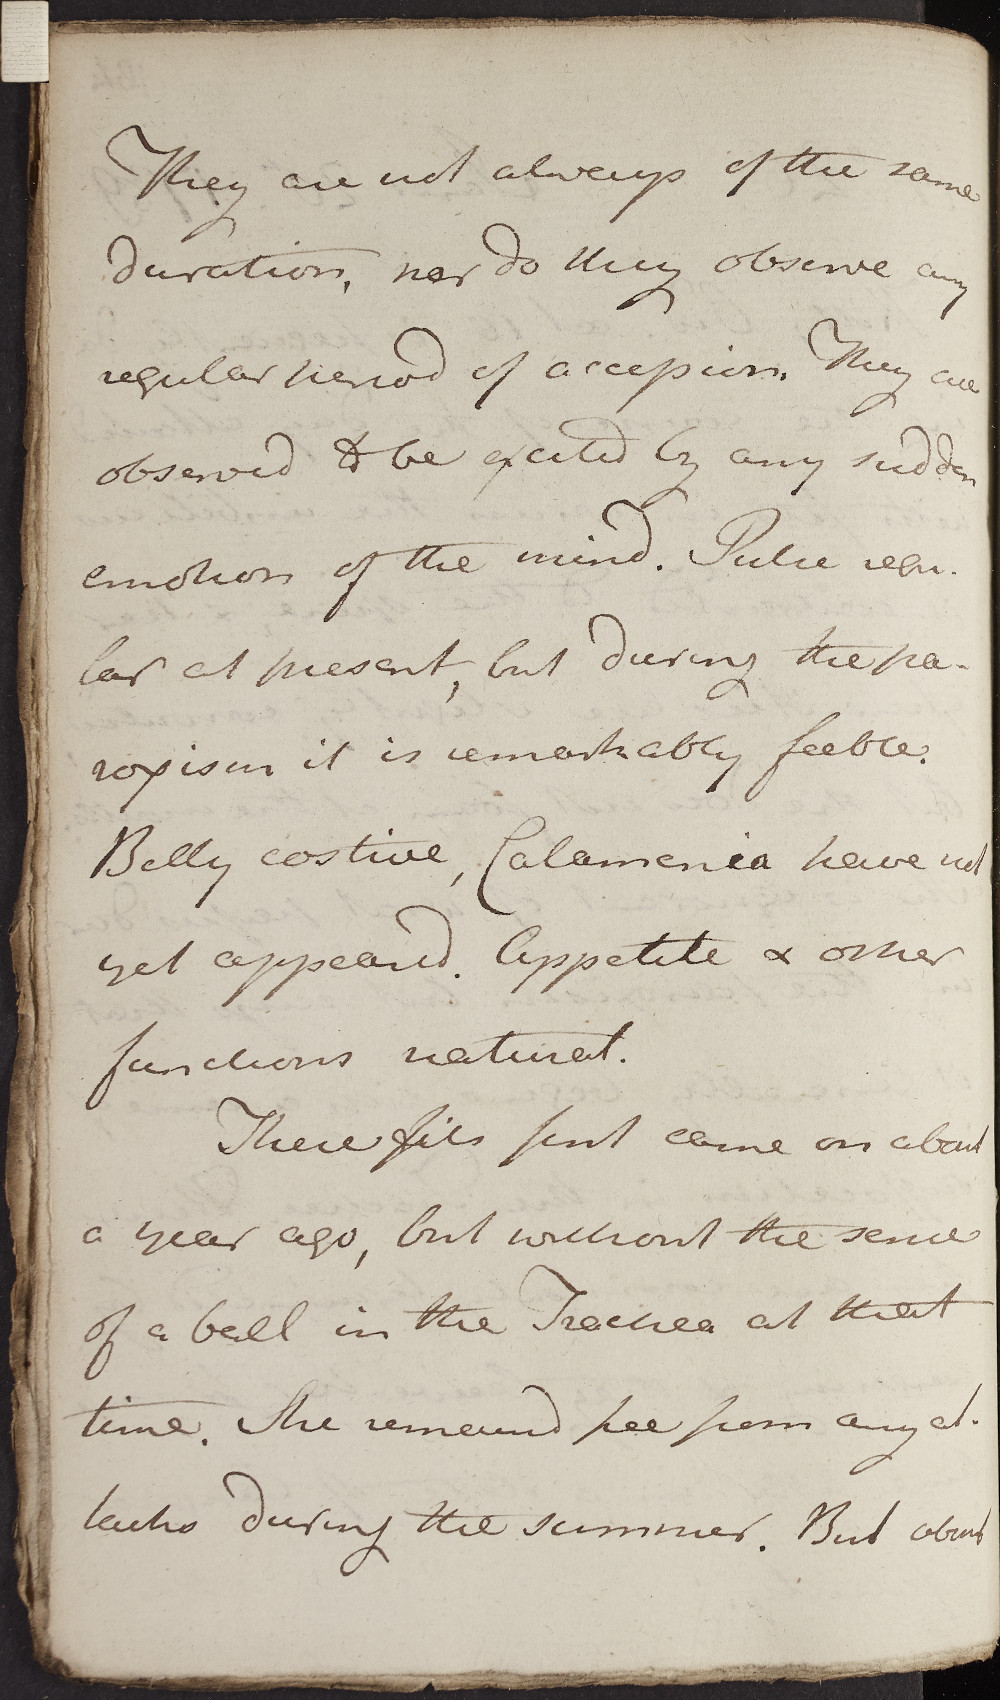 They are not always of the same
duration, nor do they observe any
regular period of accession. They are
observed to be excited by any sudden
emotion of the mind. Pulse regu-
lar at present, but during the pa-
roxism it is remarkably feeble.
Belly costive, Catamenia have not
yet appeared. Appetite & other
functions natural.
These fits first came on about
a year ago, but without the sense
of a ball in the Trachea at that
time. She remained free from any at-
tacks during the summer. But about